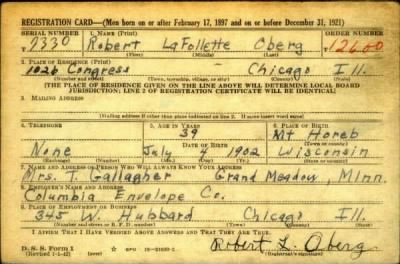 REGISTRATION CARD—(Men born on or after February 17, 1897 and on or before December 31, 1921)
SERIAL NUMBER 1. NAME (Print) ORDER NUMBER
9330 Robert LaFollette Oberg 12600
(First) (Middle) (Last)
2. PLACE OF RESIDENCE (Print)
1026 Congress Chicago Ill.
(Number and street) (Town, township, village, or city) (County) (State)
[THE PLACE OF RESIDENCE GIVEN ON THE LINE ABOVE WILL DETERMINE LOCAL BOARD
JURISDICTION; LINE 2 OF REGISTRATION CERTIFICATE WILL BE IDENTICAL]
3. MAILING ADDRESS
[Mailing address if other than place indicated on line 2. If same insert word same]
4. TELEPHONE 5. AGE IN YEARS 6. PLACE OF BIRTH
39 Mt Horeb
DATE OF BIRTH (Town or county)
None July 4 1902 Wisconsin
(Exchange) (Number) (Mo.) (Day) (Yr.) (State or country)
7. NAME AND ADDRESS OF PERSON WHO WILL ALWAYS KNOW YOUR ADDRESS
Mrs. T. Gallagher Grand Meadow, Minn.
8. EMPLOYER'S NAME AND ADDRESS
Columbia Envelope Co.
9. PLACE OF EMPLOYMENT OR BUSINESS
345 W. Hubbard Chicago Ill.
(Number and street or R. F. D. number) (Town) (County) (State)
I AFFIRM THAT I HAVE VERIFIED ABOVE ANSWERS AND THAT THEY ARE TRUE.
D. S. S. Form 1
(Revised 1-1-42) (over)
Robert L. Oberg
(Registrant's signature)